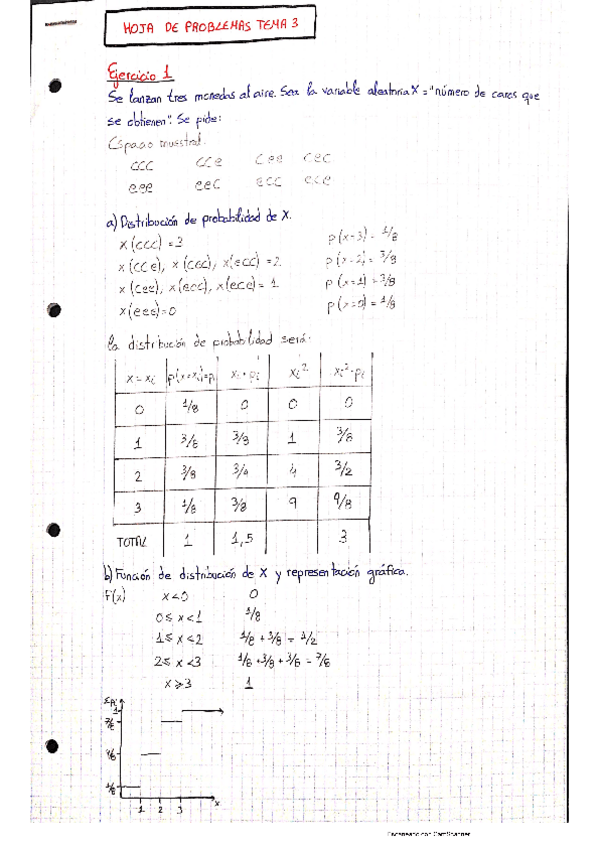 HOJA DE PROBLEMAS TEMA 3
Ejercicio 1
Se lanzan tres monedas al aire. Sea la variable aleatoria X = "número de caras que
se obtienen". Se pide:
Espacio muestral.
ccc cce cee cec
eee eec ecc ece
a) Distribución de probabilidad de X.
x(ccc) = 3 p(x=3) = 1/8
x(cce), x(cec), x(ecc) = 2 p(x=2) = 3/8
x(cee), x(eec), x(ece) = 1 p(x=1) = 3/8
x(eee) = 0 p(x=0) = 1/8
la distribución de probabilidad será:
x = xi p(x=xi)=pi xi · pi xi² xi² · pi
0 1/8 0 0 0
1 3/8 3/8 1 3/8
2 3/8 3/4 4 3/2
3 1/8 3/8 9 9/8
TOTAL 1 1,5 3
b) Función de distribución de X y representación gráfica.
F(x) x<0 0
0≤ x <1 1/8
1≤ x <2 1/8 + 3/8 = 1/2
2≤ x <3 1/8 + 3/8 + 3/8 = 7/8
x ≥ 3 1
Σpi
1
7/8
4/8
1/8
1 2 3 x
Escaneado con CamScanner